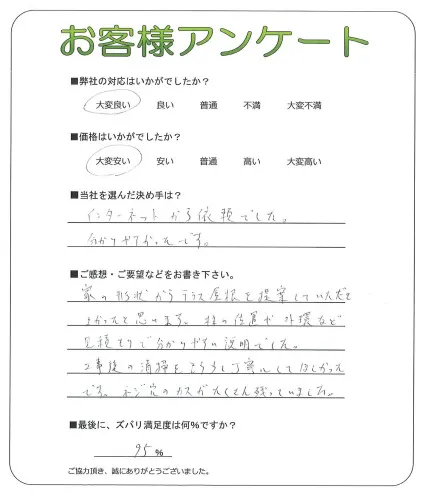 お客様アンケート
■弊社の対応はいかがでしたか？
大変良い 良い 普通 不満 大変不満
■価格はいかがでしたか？
大変安い 安い 普通 高い 大変高い
■当社を選んだ決め手は？
インターネットから依頼でした。
分かりやすかったです。
■ご感想・ご要望などをお書き下さい。
家の形状からテラス屋根を提案していただき
よかったと思います。柱の位置や外構など
見積もりで分かりやすい説明でした。
工事後の清掃をもう少し丁寧にしてほしかった
です。ネジ穴のカスがたくさん残っていました。
■最後に、ズバリ満足度は何％ですか？
95 ％
ご協力頂き、誠にありがとうございました。